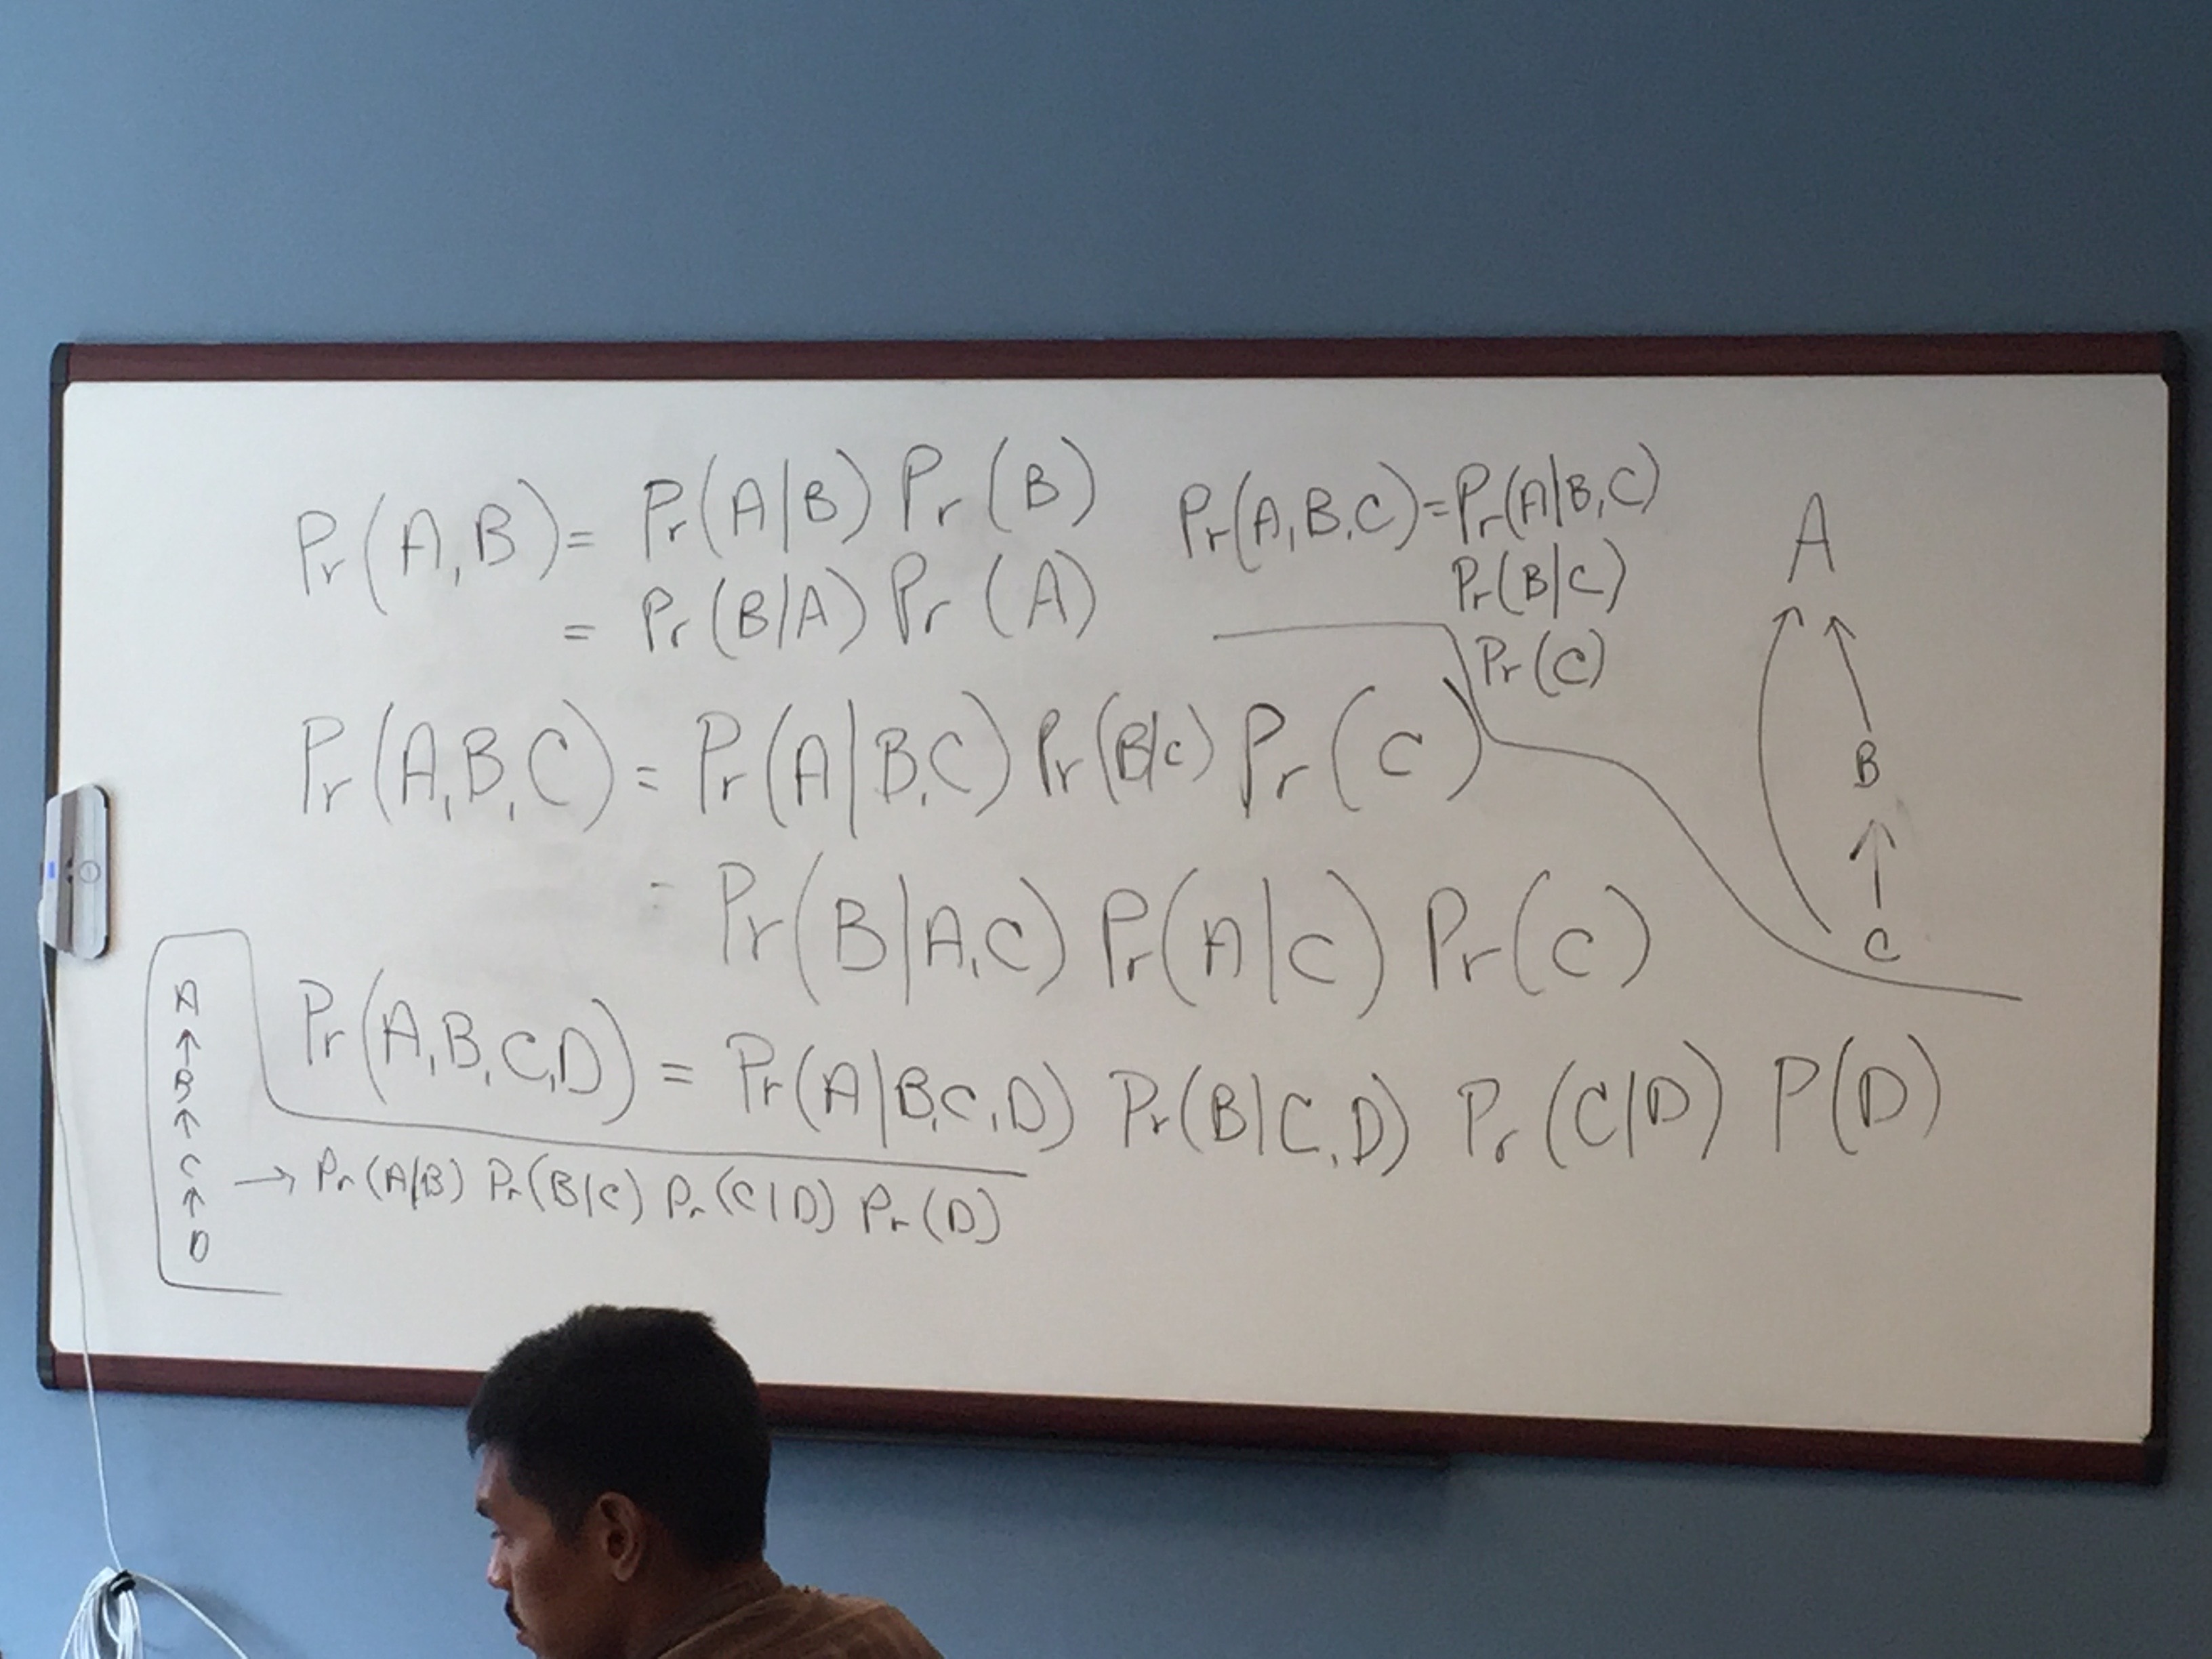 Pr(A,B) = Pr(A|B) Pr(B)
= Pr(B|A) Pr(A)
Pr(A,B,C) = Pr(A|B,C)
Pr(B|C)
Pr(C)
A
B
C
Pr(A,B,C) = Pr(A|B,C) Pr(B|C) Pr(C)
= Pr(B|A,C) Pr(A|C) Pr(C)
Pr(A,B,C,D) = Pr(A|B,C,D) Pr(B|C,D) Pr(C|D) P(D)
A
↑
B
↑
C
↑
D
→ Pr(A|B) Pr(B|C) Pr(C|D) Pr(D)